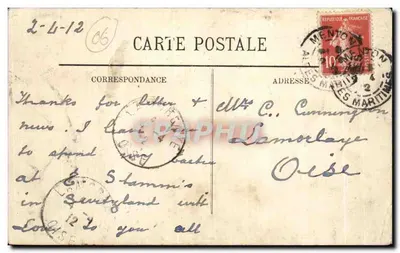 2-4-12
06
CARTE POSTALE
REPUBLIQUE FRANÇAISE
10
MENTON
ALPES MARITIMES
CORRESPONDANCE
ADRESSE
Thanks for letter &
news. I leave
to spend my
at Stamm's
in with
Love to you all
Mrs C. Cunnington
Lamorlaye
Oise